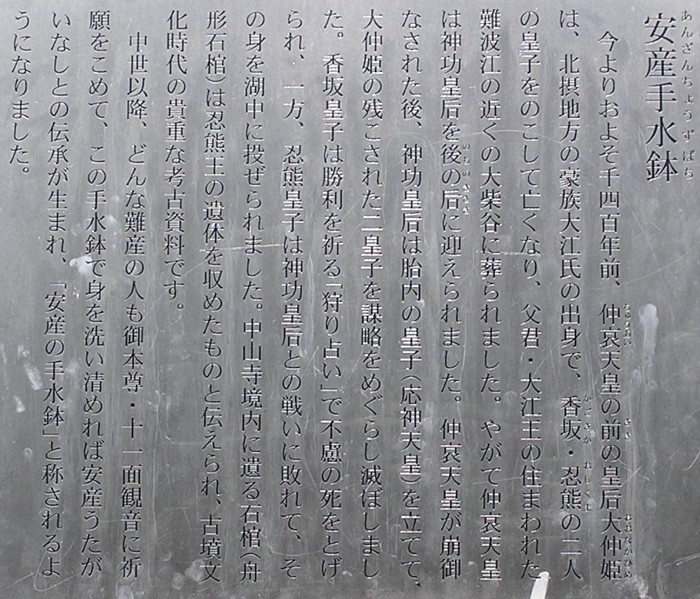 安産手水鉢
あんざんちょうずばち
今よりおよそ千四百年前、仲哀天皇の前の皇后大仲姫
は、北摂地方の豪族大江氏の出身で、香坂・忍熊の二人
の皇子をのこして亡くなり、父君・大江王の住まわれた
難波江の近くの大柴谷に葬られました。やがて仲哀天皇
は神功皇后を後の后に迎えられました。仲哀天皇が崩御
なされた後、神功皇后は胎内の皇子（応神天皇）を立てて、
大仲姫の残こされた二皇子を謀略をめぐらし滅ぼしまし
た。香坂皇子は勝利を祈る「狩り占い」で不慮の死をとげ
られ、一方、忍熊皇子は神功皇后との戦いに敗れて、そ
の身を湖中に投ぜられました。中山寺境内に遺る石棺（舟
形石棺）は忍熊王の遺体を収めたものと伝えられ、古墳文
化時代の貴重な考古資料です。
中世以降、どんな難産の人も御本尊・十一面観音に祈
願をこめて、この手水鉢で身を洗い清めれば安産うたが
いなしとの伝承が生まれ、「安産の手水鉢」と称されるよ
うになりました。